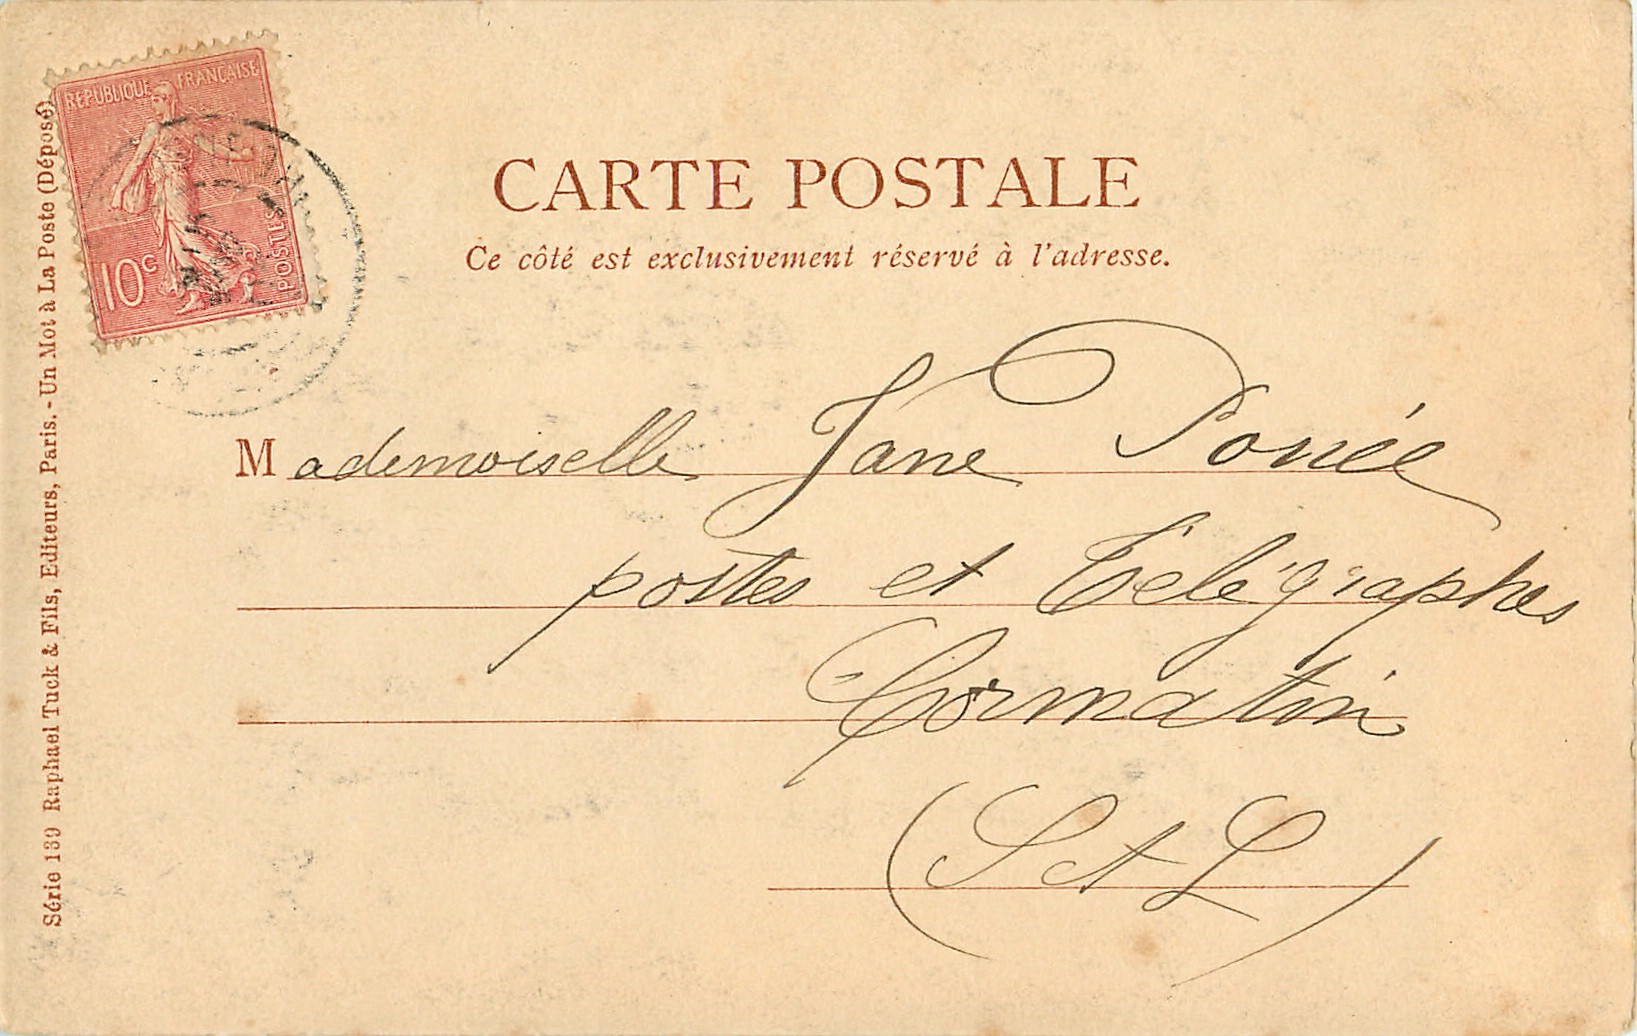 RÉPUBLIQUE FRANÇAISE
10c POSTES
CARTE POSTALE
Ce côté est exclusivement réservé à l'adresse.
Mademoiselle Jane Ponée
postes et Télégraphes
Cormatin
(S et L)
Série 139 Raphael Tuck & Fils, Editeurs, Paris. - Un Mot à La Poste (Déposé)